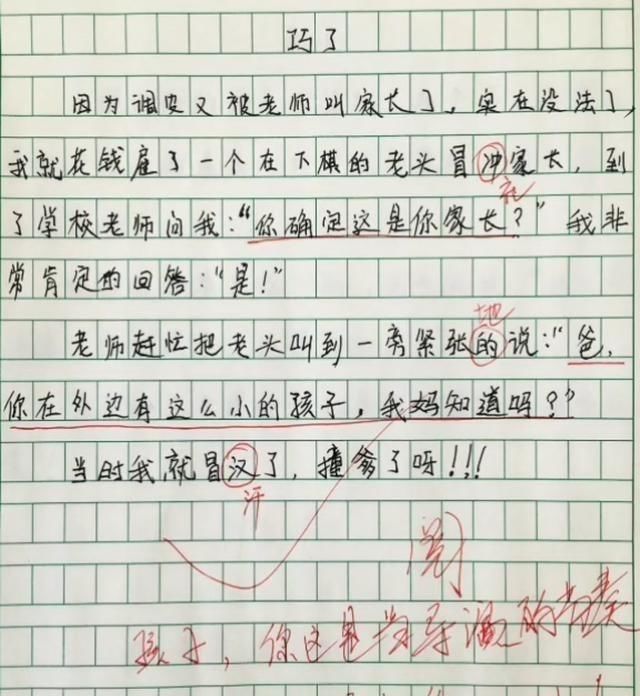 巧了
因为调皮又被老师叫家长了，实在没法了，
我就花钱雇了一个在下棋的老头冒冲家长，到
充
了学校老师问我：“你确定这是你家长？”我非
常肯定的回答：“是！”
地
老师赶忙把老头叫到一旁紧张的说：“爸，
你在外边有这么小的孩子，我妈知道吗？”
当时我就冒汉了，撞爹了呀！！！
汗
阅
孩子，你这是当导演的节奏